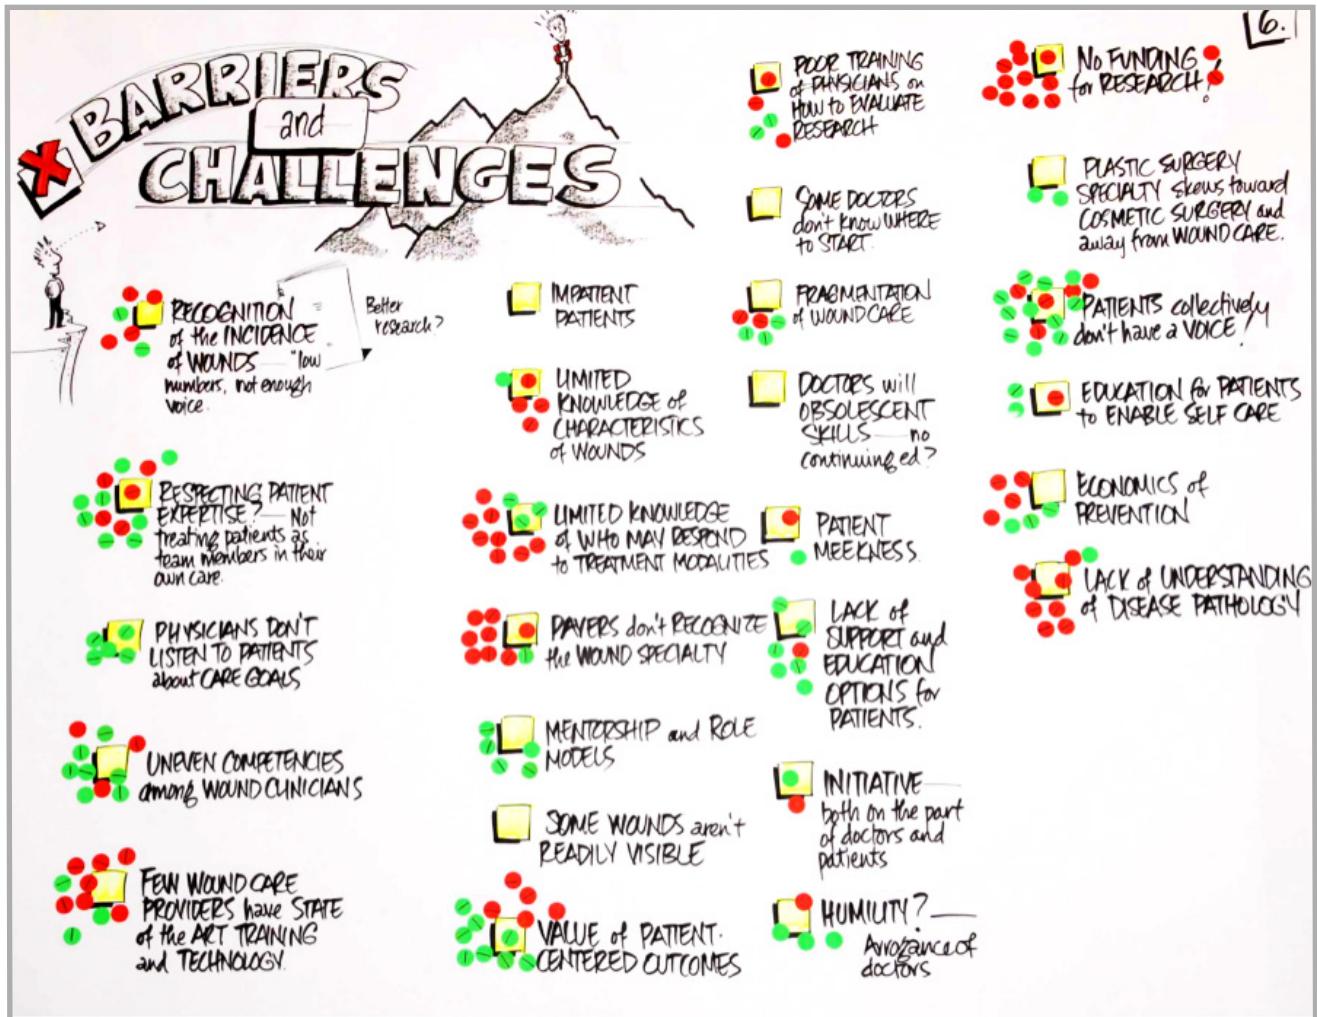 6.
BARRIERS
and
CHALLENGES
RECOGNITION
of the INCIDENCE
of WOUNDS — "low
numbers, not enough
voice.
Better
research?
RESPECTING PATIENT
EXPERTISE? — Not
treating patients as
team members in their
own care.
PHYSICIANS DON'T
LISTEN TO PATIENTS
about CARE GOALS
UNEVEN COMPETENCIES
among WOUND CLINICIANS
FEW WOUND CARE
PROVIDERS have STATE
of the ART TRAINING
and TECHNOLOGY.
IMPATIENT
PATIENTS
LIMITED
KNOWLEDGE of
CHARACTERISTICS
of WOUNDS
LIMITED KNOWLEDGE
of WHO MAY RESPOND
to TREATMENT MODALITIES
PAYERS don't RECOGNIZE
the WOUND SPECIALTY
MENTORSHIP and ROLE
MODELS
SOME WOUNDS aren't
READILY VISIBLE
VALUE of PATIENT-
CENTERED OUTCOMES
POOR TRAINING
of PHYSICIANS on
HOW to EVALUATE
RESEARCH
SOME DOCTORS
don't know WHERE
to START.
FRAGMENTATION
of WOUND CARE
DOCTORS will
OBSOLESCENT
SKILLS — no
continuing ed?
PATIENT
MEEKNESS.
LACK of
SUPPORT and
EDUCATION
OPTIONS for
PATIENTS.
INITIATIVE —
both on the part
of doctors and
patients
HUMILITY? —
Arrogance of
doctors
NO FUNDING
for RESEARCH!
PLASTIC SURGERY
SPECIALTY skews toward
COSMETIC SURGERY and
away from WOUND CARE.
PATIENTS collectively
don't have a VOICE!
EDUCATION for PATIENTS
to ENABLE SELF CARE
ECONOMICS of
PREVENTION
LACK of UNDERSTANDING
of DISEASE PATHOLOGY